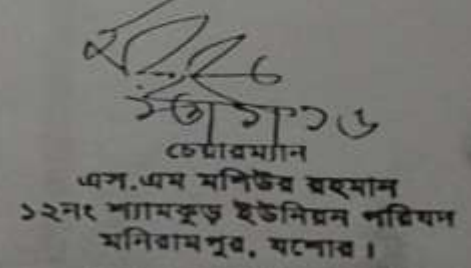 চেয়ারম্যান
এস.এম মনিউর রহমান
১২নং শ্যামকূড় ইউনিয়ন পরিষদ
মনিরামপুর, যশোর।